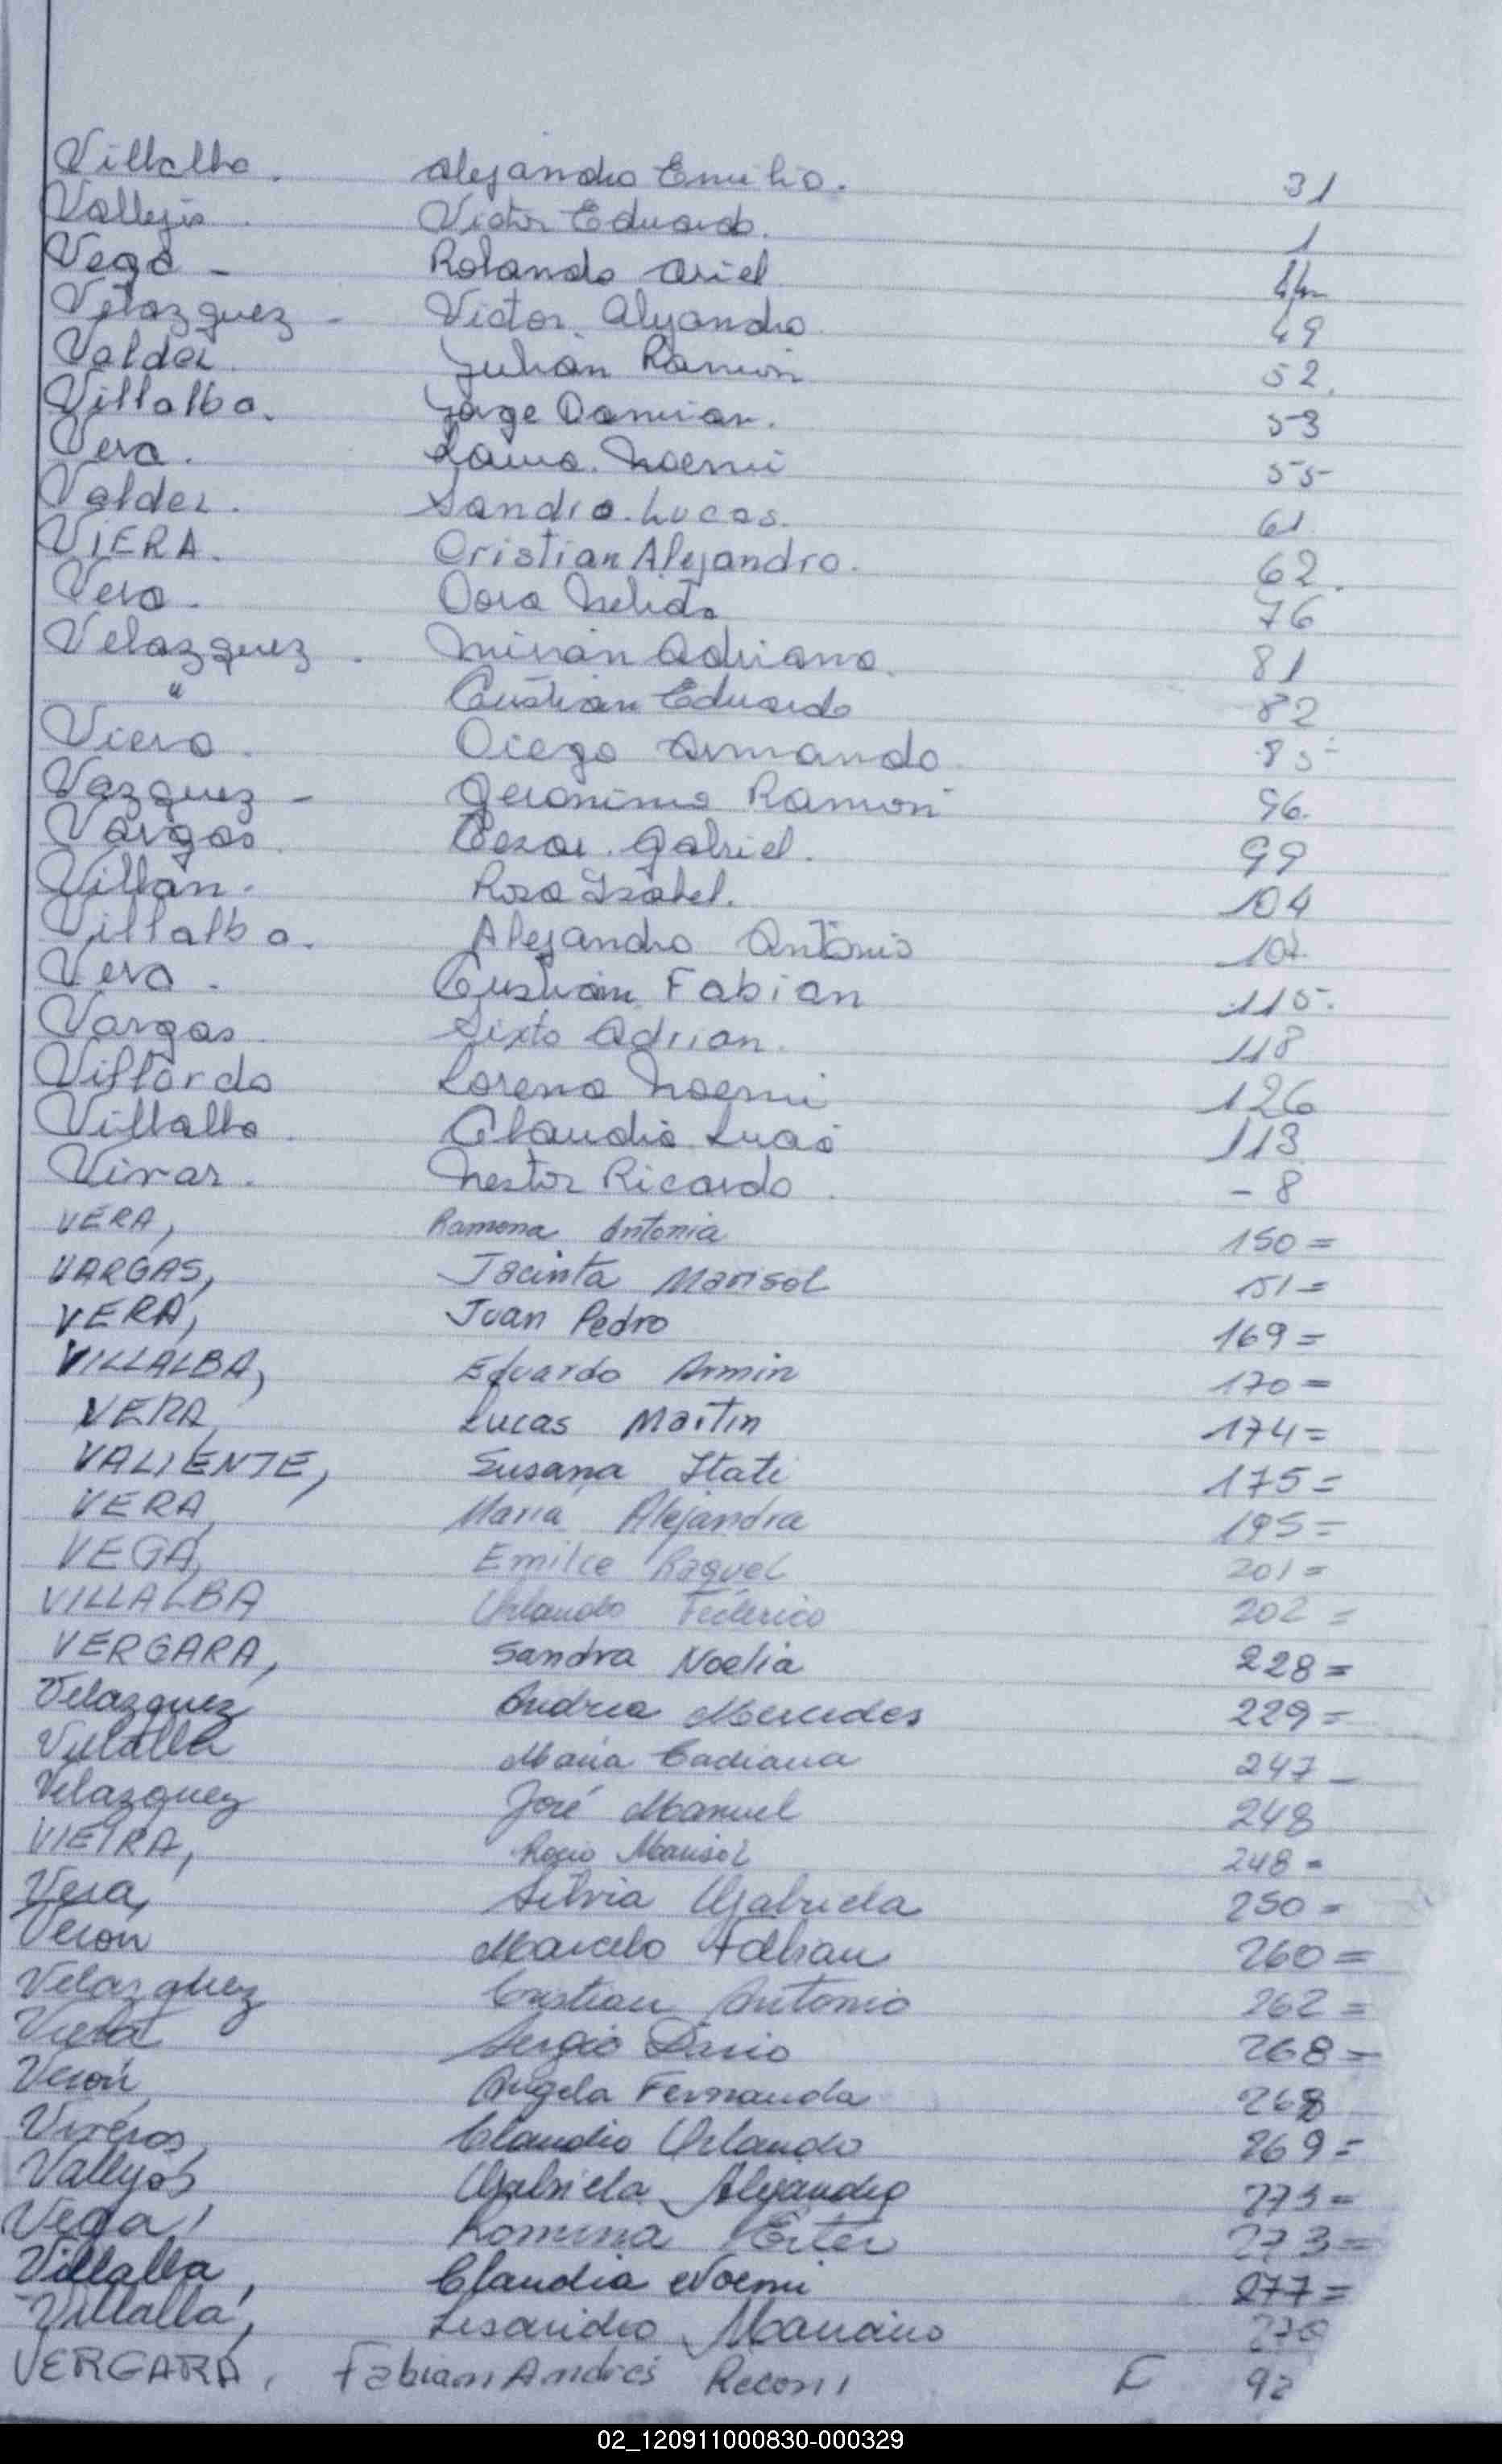 Villalba. Alejandro Emilio. 31
Vallejo. Victor Eduardo. 1
Vega - Rolando Ariel 44
Velazquez - Victor Alejandro 49
Valdez Julián Ramón 52.
Villalba. Jorge Damian. 53
Vera. Laura Noemi 55
Valdez. Sandro Lucas. 61
VIERA. Cristian Alejandro. 62.
Vera. Dora Nelida 76
Velazquez. Mirian Adriana 81
" Cristian Eduardo 82
Viera. Diego Armando 85
Vazquez - Geronimo Ramon 96.
Vargas. Cezar Gabriel. 99
Villan. Rosa Isabel. 104
Villalba. Alejandro Antonio 107
Vera. Cristian Fabian 115.
Vargas Sixto Adrian. 118
Villordo Lorena Noemi 126
Villalba. Claudio Lucas 113
Vivar. Nestor Ricardo. - 8
VERA, Ramona Antonia 150 =
VARGAS, Jacinta Marisol 151 =
VERA, Juan Pedro 169 =
VILLALBA, Eduardo Armin 170 =
VERA, Lucas Martin 174 =
VALIENTE, Susana Itati 175 =
VERA, Maria Alejandra 195 =
VEGA, Emilce Raquel 201 =
VILLALBA Orlando Federico 202 =
VERGARA, Sandra Noelia 228 =
Velazquez Andrea Mercedes 229 =
Villalba Maria 247 -
Velazquez José Manuel 248
VIEIRA, Rocio Marisol 248 =
Vera, Silvia Gabriela 250 =
Verón Marcelo Adrian 260 =
Velazquez Cristian Antonio 262 =
Viera Sergio Dario 268 =
Verón, Angela Fernanda 268
Viveros, Claudio Orlando 269 =
Vallejos Gabriela 273 =
Vega, Romina Ester 273 =
Villalba, Claudia Noemi 277 =
Villalba, Lisandro Mariano
VERGARA, Fabian Andrés Recon. F 92
02_120911000830-000329